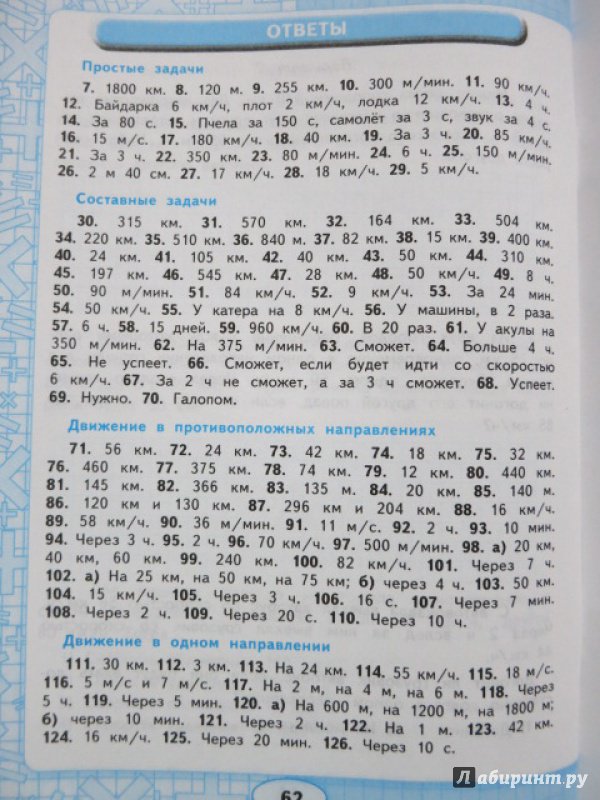 ОТВЕТЫ
Простые задачи
7. 1800 км. 8. 120 м. 9. 255 км. 10. 300 м/мин. 11. 90 км/ч.
12. Байдарка 6 км/ч, плот 2 км/ч, лодка 12 км/ч. 13. 4 ч.
14. За 80 с. 15. Пчела за 150 с, самолёт за 3 с, звук за 4 с.
16. 15 м/с. 17. 180 км/ч. 18. 40 км. 19. За 3 ч. 20. 85 км/ч.
21. За 3 ч. 22. 350 км. 23. 80 м/мин. 24. 6 ч. 25. 150 м/мин.
26. 2 м 40 см. 27. 17 км/ч. 28. 18 км/ч. 29. 5 км/ч.
Составные задачи
30. 315 км. 31. 570 км. 32. 164 км. 33. 504 км.
34. 220 км. 35. 510 км. 36. 840 м. 37. 82 км. 38. 15 км. 39. 400 км.
40. 24 км. 41. 105 км. 42. 40 км. 43. 50 км. 44. 310 км.
45. 197 км. 46. 545 км. 47. 28 км. 48. 50 км/ч. 49. 8 ч.
50. 90 м/мин. 51. 84 км/ч. 52. 9 км/ч. 53. За 24 мин.
54. 50 км/ч. 55. У катера на 8 км/ч. 56. У машины, в 2 раза.
57. 6 ч. 58. 15 дней. 59. 960 км/ч. 60. В 20 раз. 61. У акулы на
350 м/мин. 62. На 375 м. 63. Сможет. 64. Больше 4 ч.
65. Не успеет. 66. Сможет, если будет идти со скоростью
6 км/ч. 67. За 2 ч не сможет, а за 3 ч сможет. 68. Успеет.
69. Нужно. 70. Галопом.
Движение в противоположных направлениях
71. 56 км. 72. 24 км. 73. 42 км. 74. 18 км. 75. 32 км.
76. 460 км. 77. 375 км. 78. 74 км. 79. 12 км. 80. 440 км.
81. 145 км. 82. 366 км. 83. 135 м. 84. 20 км. 85. 140 м.
86. 120 км и 130 км. 87. 296 км и 204 км. 88. 16 км/ч.
89. 58 км/ч. 90. 36 м/мин. 91. 11 м/с. 92. 2 ч. 93. 10 мин.
94. Через 3 ч. 95. 2 ч. 96. 70 км/ч. 97. 500 м/мин. 98. а) 20 км,
40 км, 60 км. 99. 240 км. 100. 82 км/ч. 101. Через 7 ч.
102. а) На 25 км, на 50 км, на 75 км; б) через 4 ч. 103. 50 км.
104. 15 км/ч. 105. Через 3 ч. 106. 16 с. 107. Через 7 мин.
108. Через 2 ч. 109. Через 20 с. 110. Через 10 ч.
Движение в одном направлении
111. 30 км. 112. 3 км. 113. На 24 км. 114. 55 км/ч. 115. 18 м/с.
116. 5 м/с и 7 м/с. 117. На 2 м, на 4 м, на 6 м. 118. Через
5 ч. 119. Через 5 мин. 120. а) На 600 м, на 1200 м, на 1800 м;
б) через 10 мин. 121. Через 2 ч. 122. На 1 м. 123. 42 км.
124. 16 км/ч. 125. Через 20 мин. 126. Через 10 с.
62
Лабиринт.ру